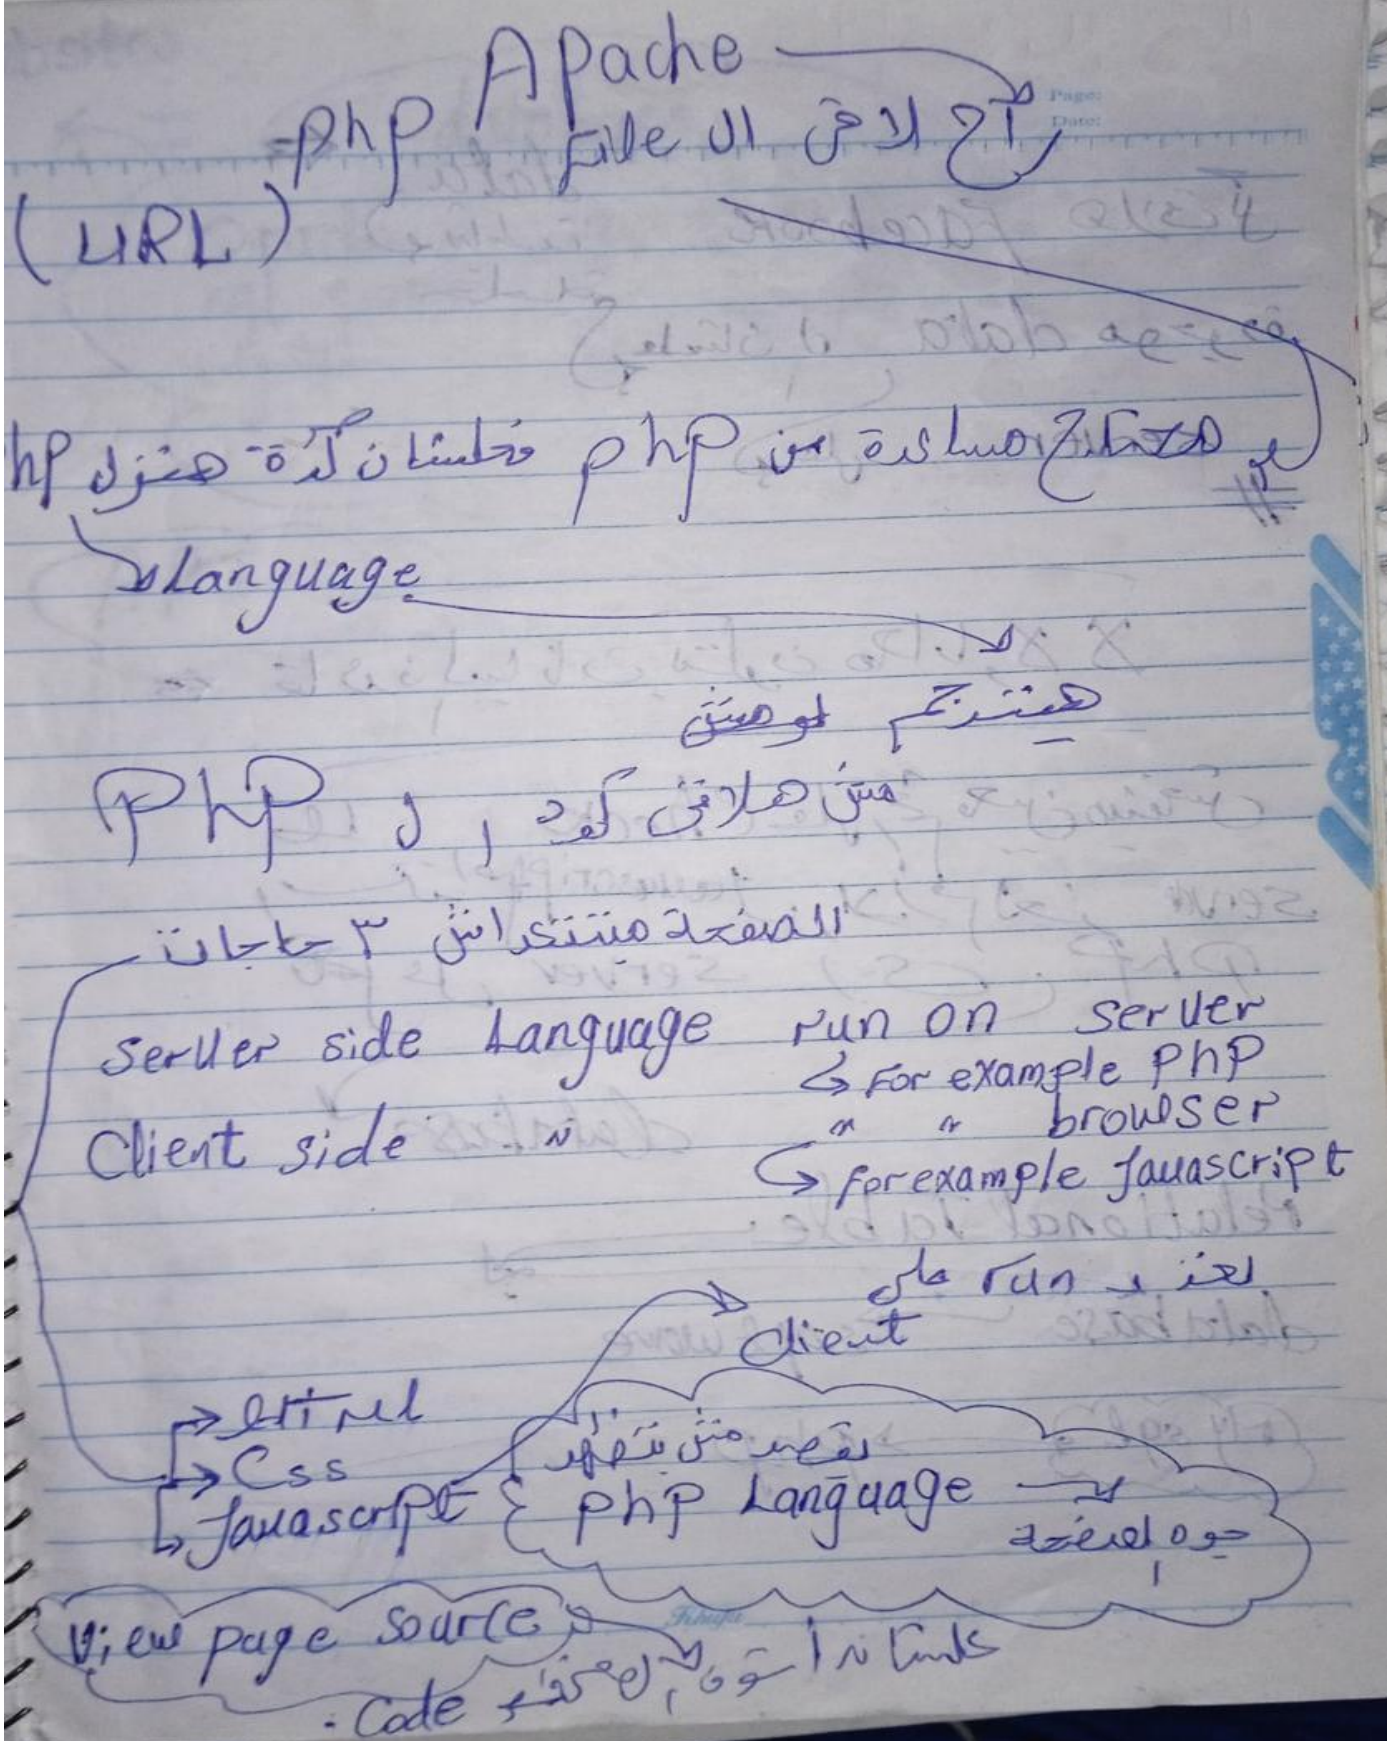 Apache
Page:
راح لاقى ال File php-
Date:
(URL)
هحتاج مساعدة من php فعلشان كدة هنزل hp
Language
هيترجم لو مش
مش هلاقى كود ال PHP
الصفحة مبتقراش ٣ حاجات
Server side Language run on server
For example PhP
Client side " " " browser
for example Javascript
run على
Client
HTML
Css
Javascript
نقصد مش بتظهر
php Language
جوه الصفحة
View page source
علشان اشوف
Code.